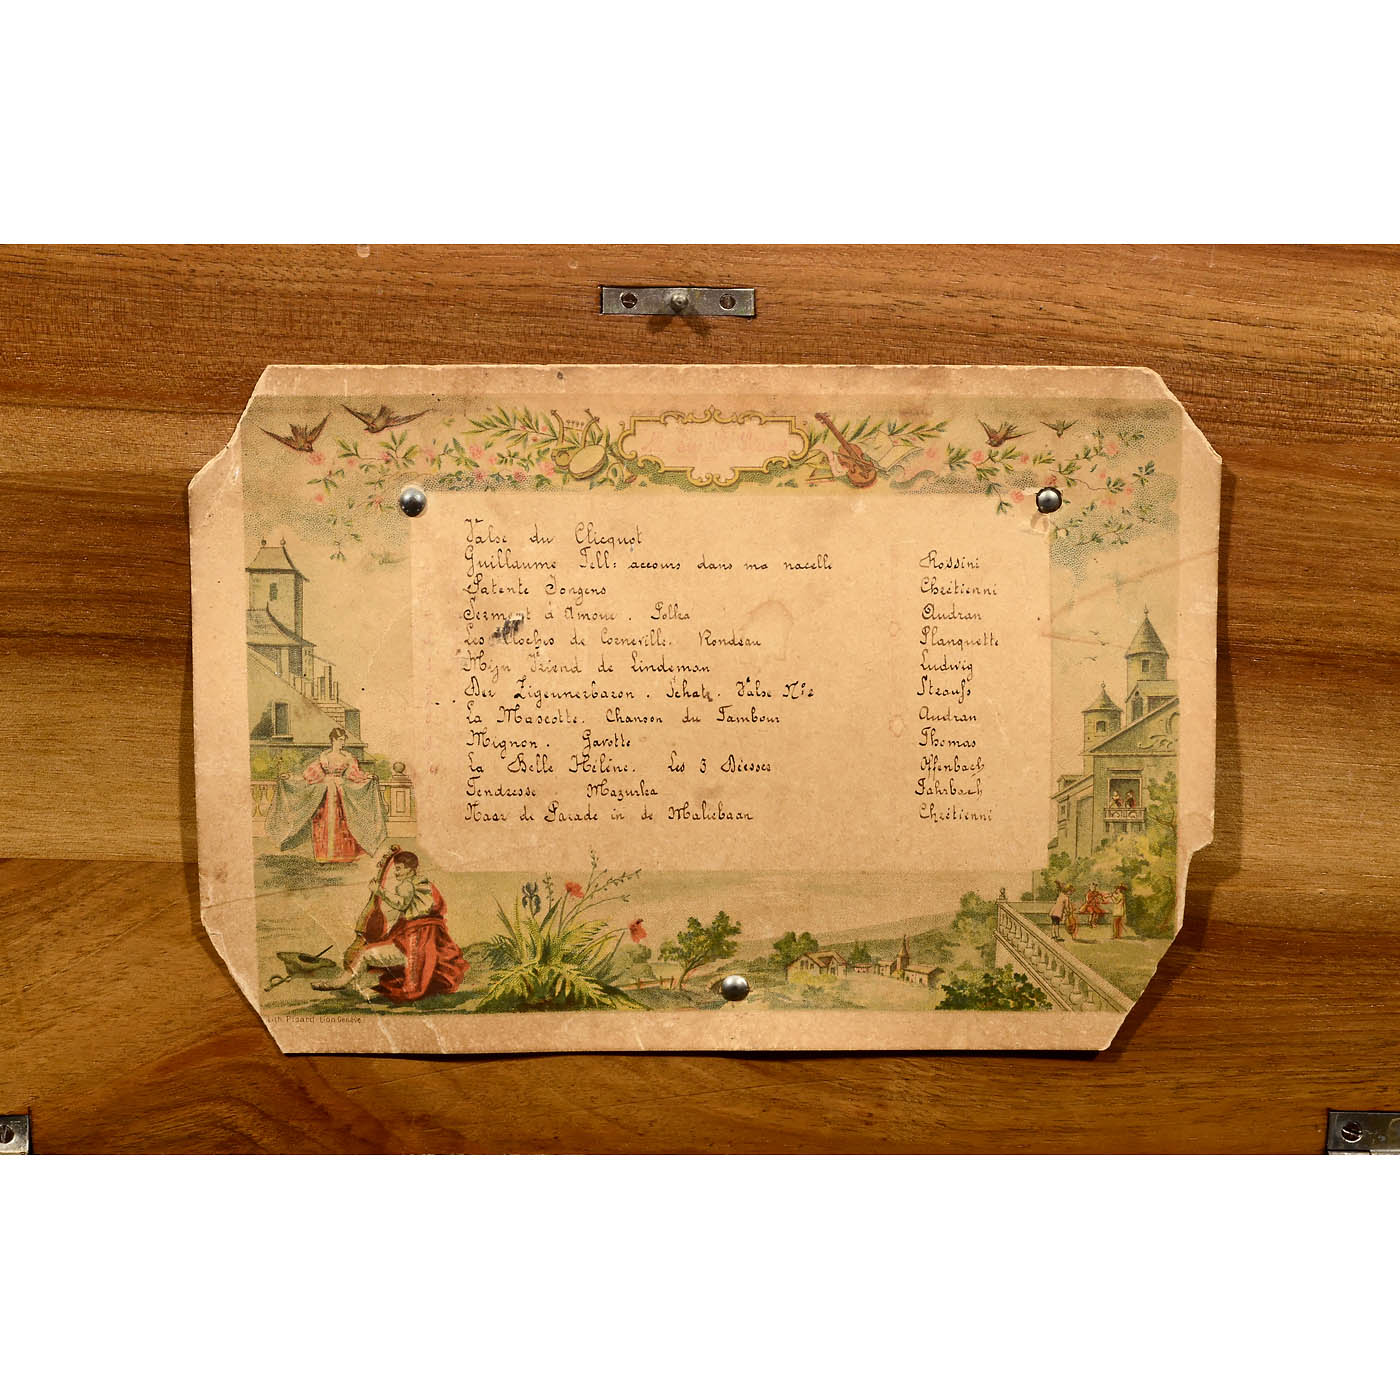 Valse du Clicquot
Guillaume Tell: accours dans ma nacelle Rossini
Patente Jongens Chrétienni
Serment d'Amour. Polka Audran
Les Cloches de Corneville. Rondeau Planquette
Mijn Vriend de Lindeman Ludwig
Der Zigeunerbaron. Schatz. Valse Nº2 Strauss
La Mascotte. Chanson du Tambour Audran
Mignon. Gavotte Thomas
La Belle Hélène. Les 3 Déesses Offenbach
Tendresse. Mazurka Fahrbach
Naar de Parade in de Maliebaan Chrétienni
Lith. Picard-Lion Genève